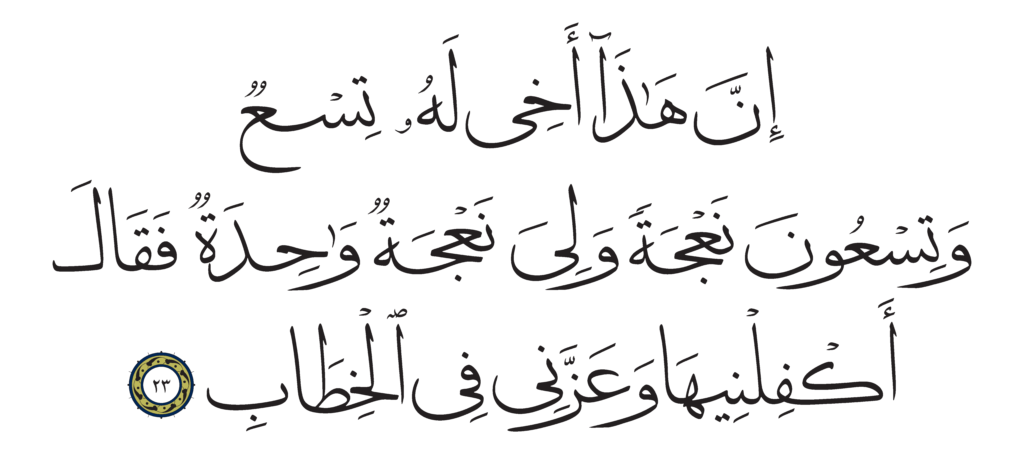 إِنَّ هَٰذَآ أَخِى لَهُۥ تِسْعٌ
وَتِسْعُونَ نَعْجَةً وَلِىَ نَعْجَةٌ وَٰحِدَةٌ فَقَالَ
أَكْفِلْنِيهَا وَعَزَّنِى فِى ٱلْخِطَابِ ٢٣